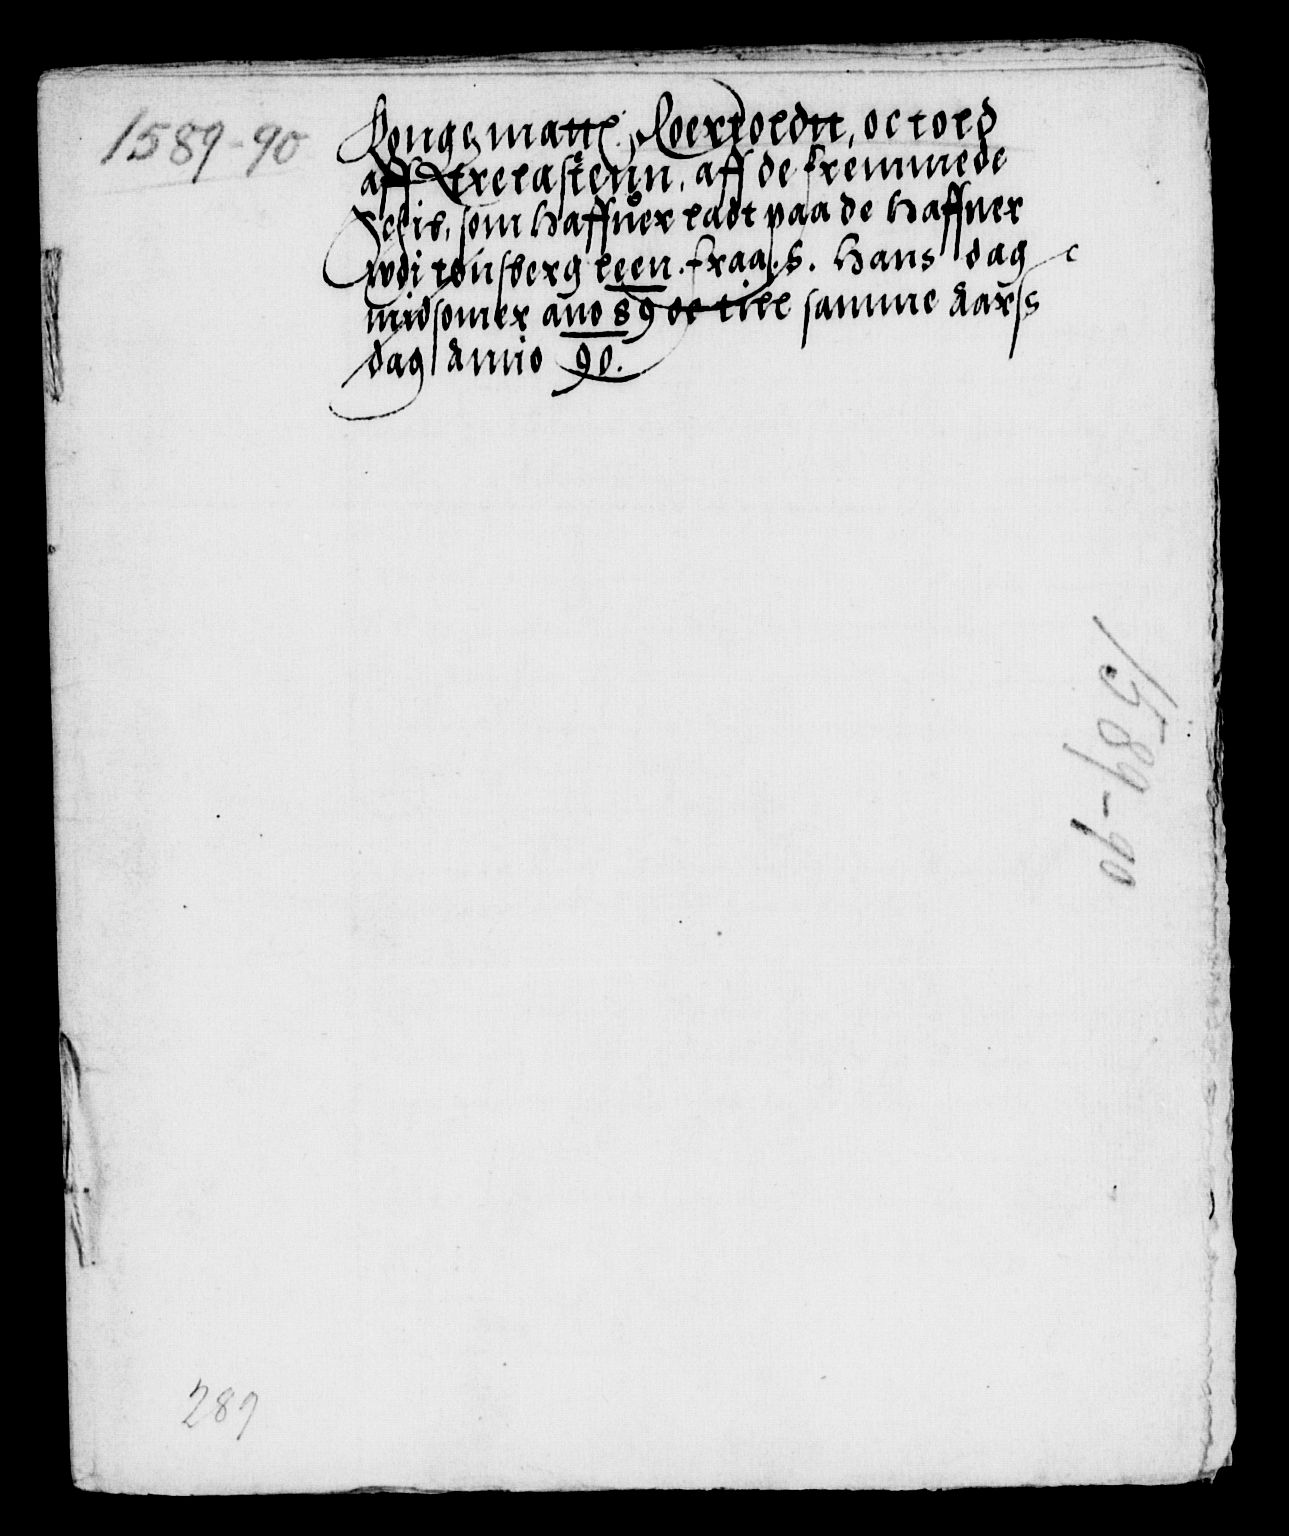 1589-90
Kong: matt: Roertoldtt, oc told
aff Trelastenn, aff de fremmede
Schib, som haffuer ladt paa de haffner
wdi tunsberg leen. fraa. S. Hans dag
midsomer ano 89 oc till samme aarss
dag Anno 90.
1589-90
289